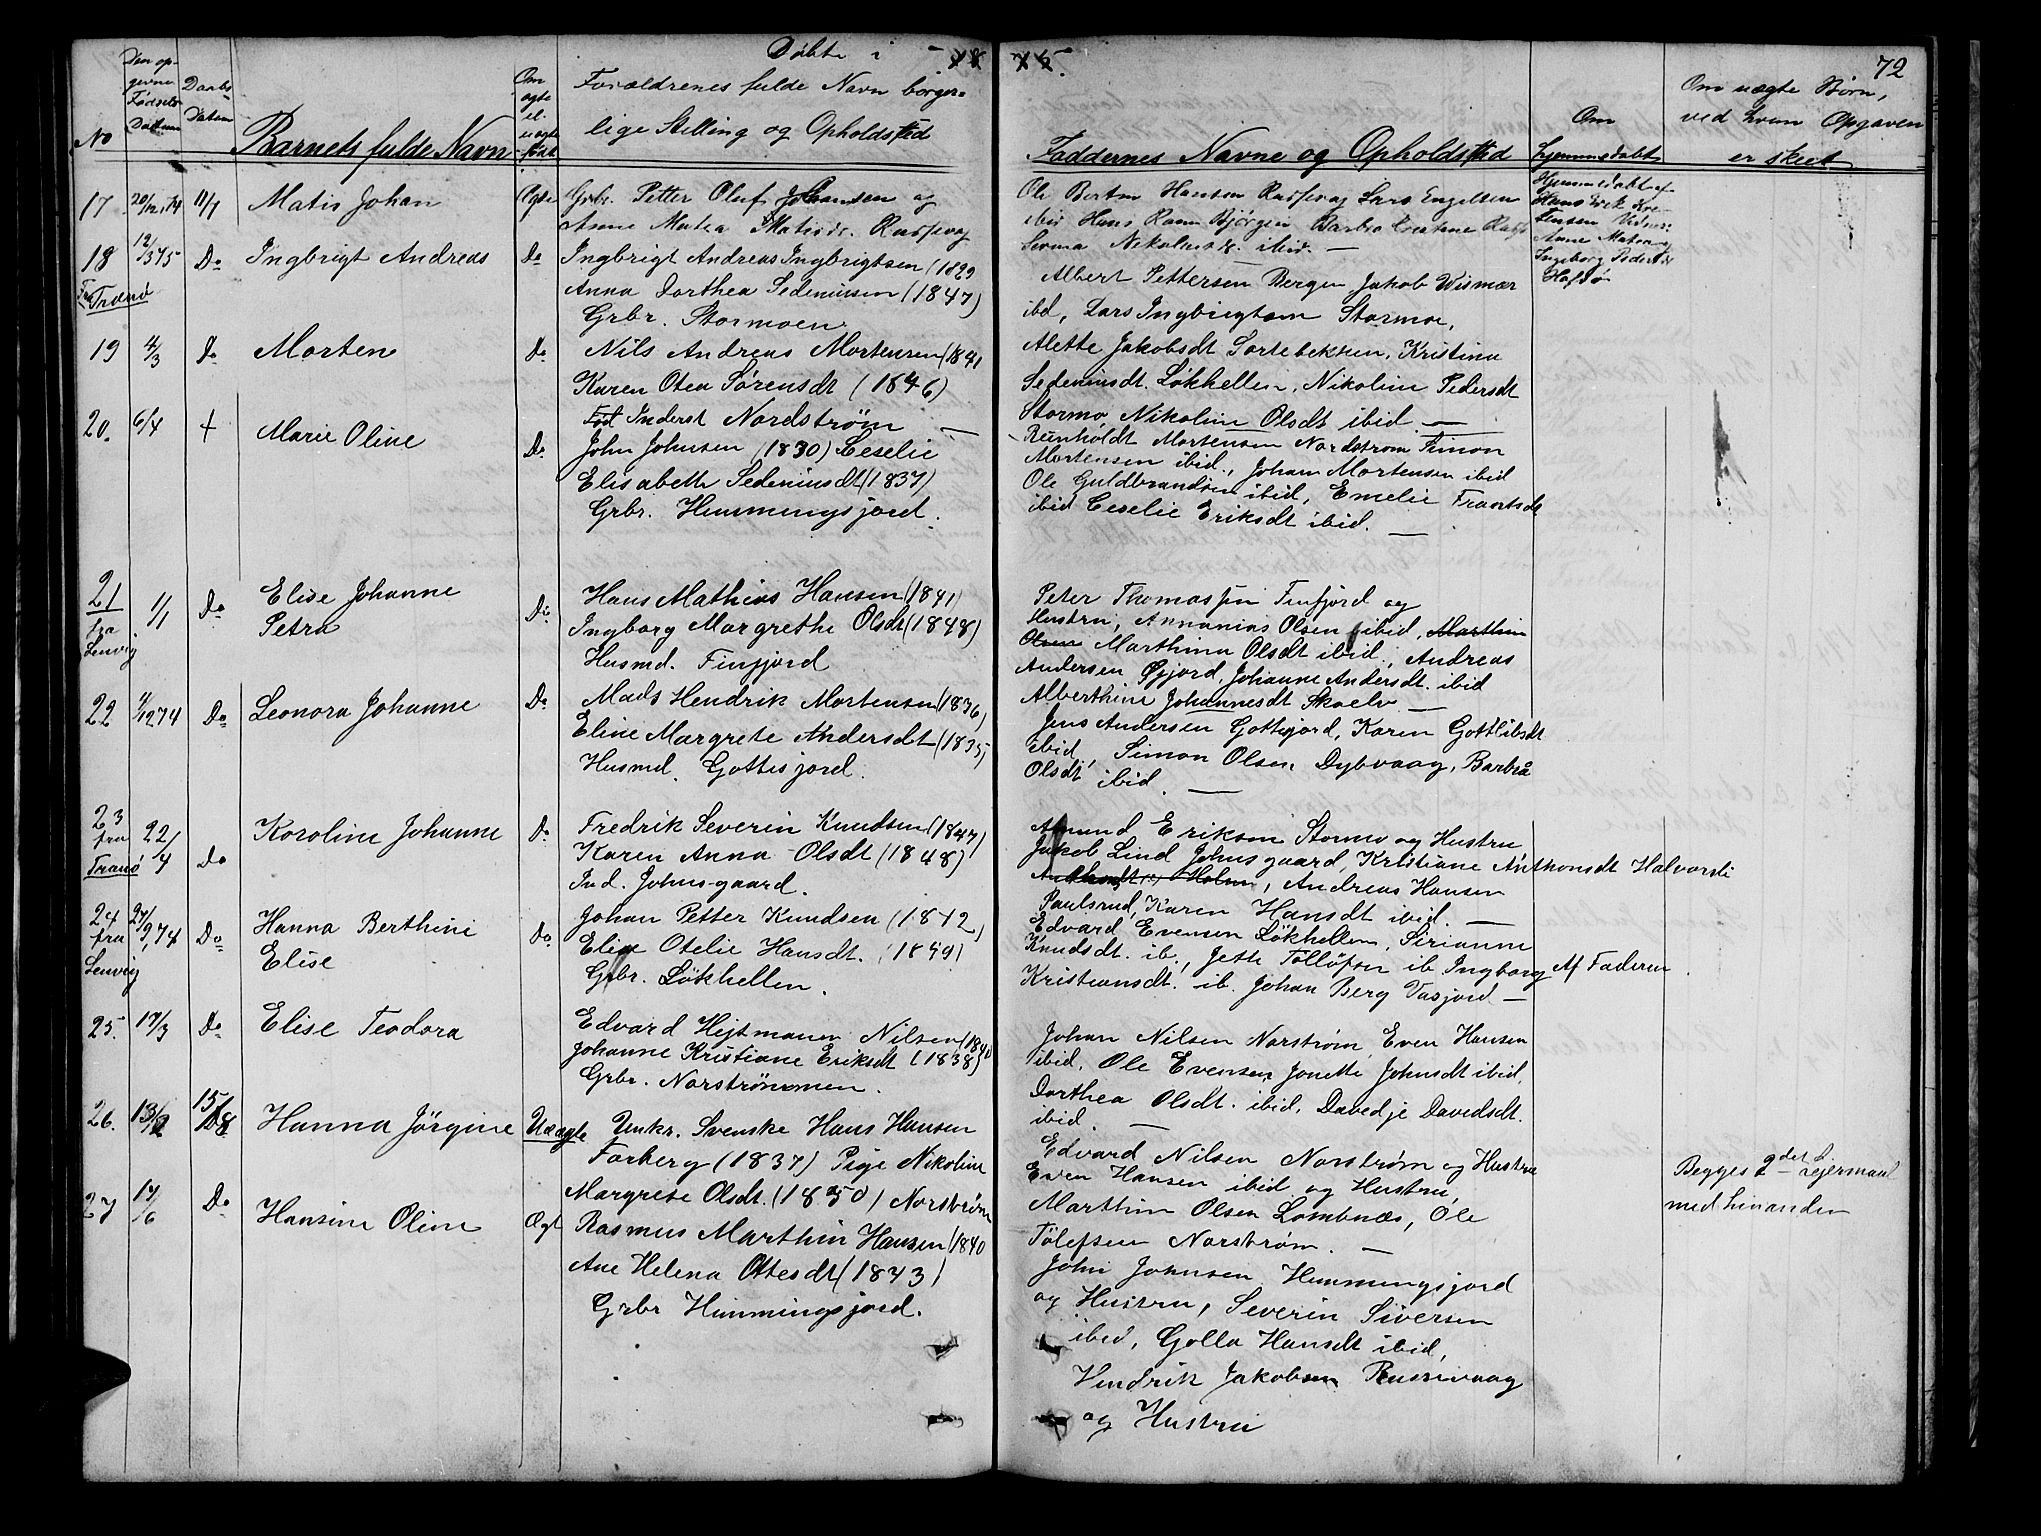 Døbte i 18 75.
72
No
Den op-
givne
Fødsels
Datum
Daabs
Daten
Barnets fulde Navn
Om
ægte
el.
uægte
født
Forældrenes fulde Navn borger=
lige Stilling og Opholdsted
Faddernes Navne og Opholdsted
Om
hjemmedøbt
Om uægte Børn,
ved hvem Opgaven
er skeet
17 20/12 74 11/7 Matis Johan Ægte
Grbr. Petter Oluf Johansen og
Anne Matea Matisdr.
Ole Bertin Hanson Lars Engeltsen
ibid Hans Bjørgen Barbra
Nikolaisdr. ibid. —
Hjemmedøbt af
Hans
Anne
Ingeborg Pedersdr
Hafsør
18 12/3 75 Do Ingbrigt Andreas Do
Fra
Tranø
Ingbrigt Andreas Ingbrigtsen (1829
Anna Dorthea Sedeniusen (1847)
Grbr. Stormoen
Albert Pettersen Bergen Jakob Wismær
ibd, Lars Ingbrigtsen Stormoe,
19 4/3 Do Morten Do
Nils Andreas Mortensen (1841
Karen Otea Sørensdt (1846)
Inderst Nordstrøm —
Alette Jakobsdt Sortebekken, Kristina
Sedeniusdt. Løkhellen, Nikoline Pedersdt
Stormo, Nikoline Olsdt ibid —
20. 6/4 + Marie Oline Do
John Johnsen (1830) Ceselie
Elisabeth Sedeniusdt (1837)
Grbr. Hemmingsjord.
Reinholdt Mortensen Nordstrøm Simon
Mortensen ibid., Johan Mortensen ibid
Ole Guldbrandsen ibid, Emelie Frantsdt
ibid Ceselie Eriksdt ibid. —
21 1/1 Do Elise Johanne
Petra Do
fra
Lenvig
Hans Mathias Hansen (1841)
Ingborg Margrethe Olsdt (1848)
Husmd. Finfjord
Peter Thomassen Finfjord og
Hustru, Annanias Olsen ibid, Marthin
Olsen Marthina Olsdt ibid., Andreas
Andersen Øyjord, Johanne Andersdt. ibid
Alberthine Johannesdt Skoelv —
22 4/12 74 Do Leonora Johanne Do
Mads Hendrik Mortensen (1836)
Eline Margrete Andersdt (1835)
Husmd. Gottesjord.
Jens Andersen Gottesjord, Karen Gottlibsdt
ibid, Simon Olsen Dybvaag, Barbra
Olsdt ibid. —
23
fra
Tranø 22/4 Do Karoline Johanne Do
Fredrik Severin Knudsen (1847)
Karen Anna Olsdt (1848)
Ind. Johnsgaard.
Amund Eriksen Stormo og Hustru
Jakob Lind Johnsgaard, Kristiane Anthonsdt Halvorsli
Andreas Hansen
Paulsrud, Karen Hansdt ibid. —
24
fra
Lenvig 27/9 74 Do Hanna Berthine
Elise Do
Johan Petter Knudsen (1842)
Elise Otelie Hansdt. (1849)
Grbr. Løkhellen.
Edvard Evensen Løkhellen, Sirianne
Knudsdt. ib., Jette Tolløfsen ib. Ingborg
Kristiansdt. ib. Johan Berg Vasjord —
Af Faderen.
25. 17/3 Do Elise Teodora
Edvard Hejtmann Nilsen (1840
Johanne Kristiane Eriksdt (1838)
Grbr. Norstrømmen.
Johan Nilsen Norstrøm Even Hansen
ibid, Ole Evensen Jonette Johnsdt ibid,
Dorthea Olsdt. ibid, Davedje Davidsdt.
ibid. —
26. 13/2 15/8 Hanna Jørgine Uægte
Umkr. Svenske Hans Hansen
Forberg (1837) Pige Nikoline
Margrete Olsdt. (1850) Norstrøm
Edvard Nilsen Norstrøm og Hustru
Even Hansen ibid og Hustru,
Marthin Olsen Lombnæs, Ole
Tølefsen Norstrøm. —
Begges 2det Lejermaal
med hinanden
27 14/6 Do Hansine Oline Ægt
Rasmus Marthin Hansen (1840
Ane Helena Ottesdt (1843)
Grbr Himmingsjord.
John Johnsen Hemmingsjord
og Hustru, Severin Siversen
ibid, Golla Hansdt ibid,
Hendrik Jakobsen Russevaag
og Hustru